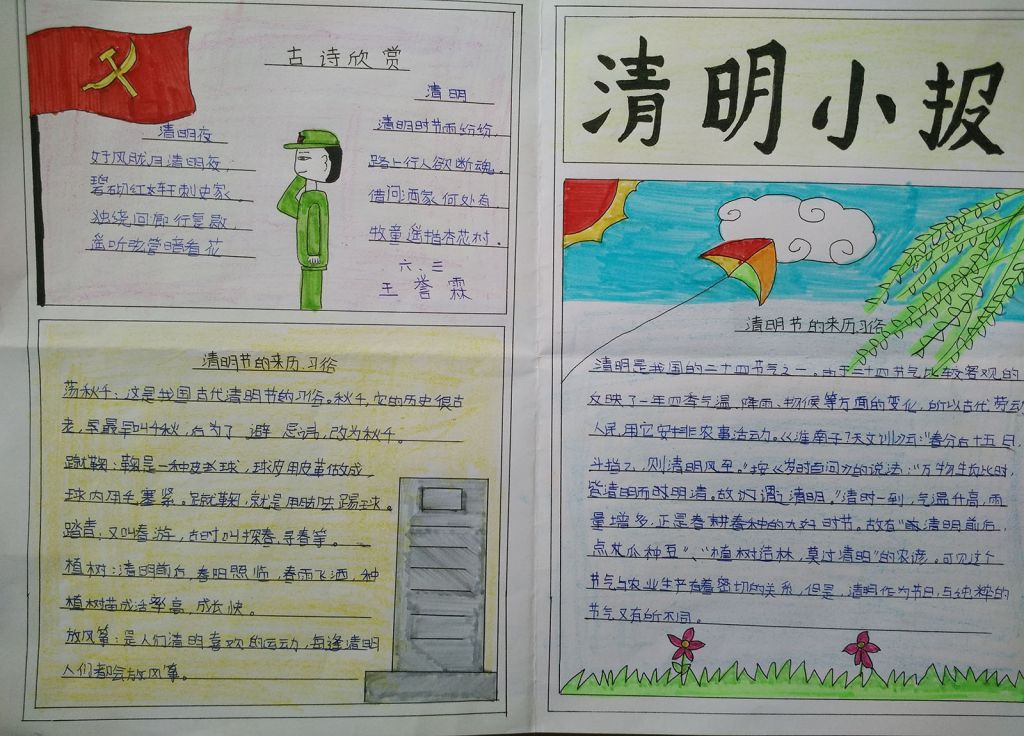 古诗欣赏
清明夜
好风胧月清明夜，
碧砌红轩刺史家。
独绕回廊行复歇，
遥听弦管暗看花
清明
清明时节雨纷纷，
路上行人欲断魂。
借问酒家何处有
牧童遥指杏花村。
六.三
王誉霖
清明节的来历.习俗
荡秋千：这是我国古代清明节的习俗。秋千，它的历史很古
老，早最早叫千秋，后为了避忌讳，改为秋千。
蹴鞠：鞠是一种皮球，球皮用皮革做成，
球内用毛塞紧。蹴鞠，就是用脚去踢球。
踏青：又叫春游，古时叫探春、寻春等。
植树：清明前后，春阳照临，春雨飞洒，种
植树苗成活率高，成长快。
放风筝：是人们清明喜欢的运动，每逢清明
人们都会放风筝。
清明小报
清明节的来历习俗
清明是我国的二十四节气之一。由于二十四节气比较客观的
反映了一年四季气温、降雨、物候等方面的变化，所以古代劳动
人民用它安排农事活动。《淮南子7天文训》云：“春分后十五日，
斗指乙，则清明风至。”按《岁时百问》的说法：“万物生长此时，
皆清明而时明清。故谓清明。”清时一到，气温升高，雨
量增多，正是春耕春种的大好时节。故有“清明前后，
点瓜种豆”、“植树造林，莫过清明”的农谚。可见这个
节气与农业生产有着密切的关系，但是，清明作为节日，与纯粹的
节气又有所不同。